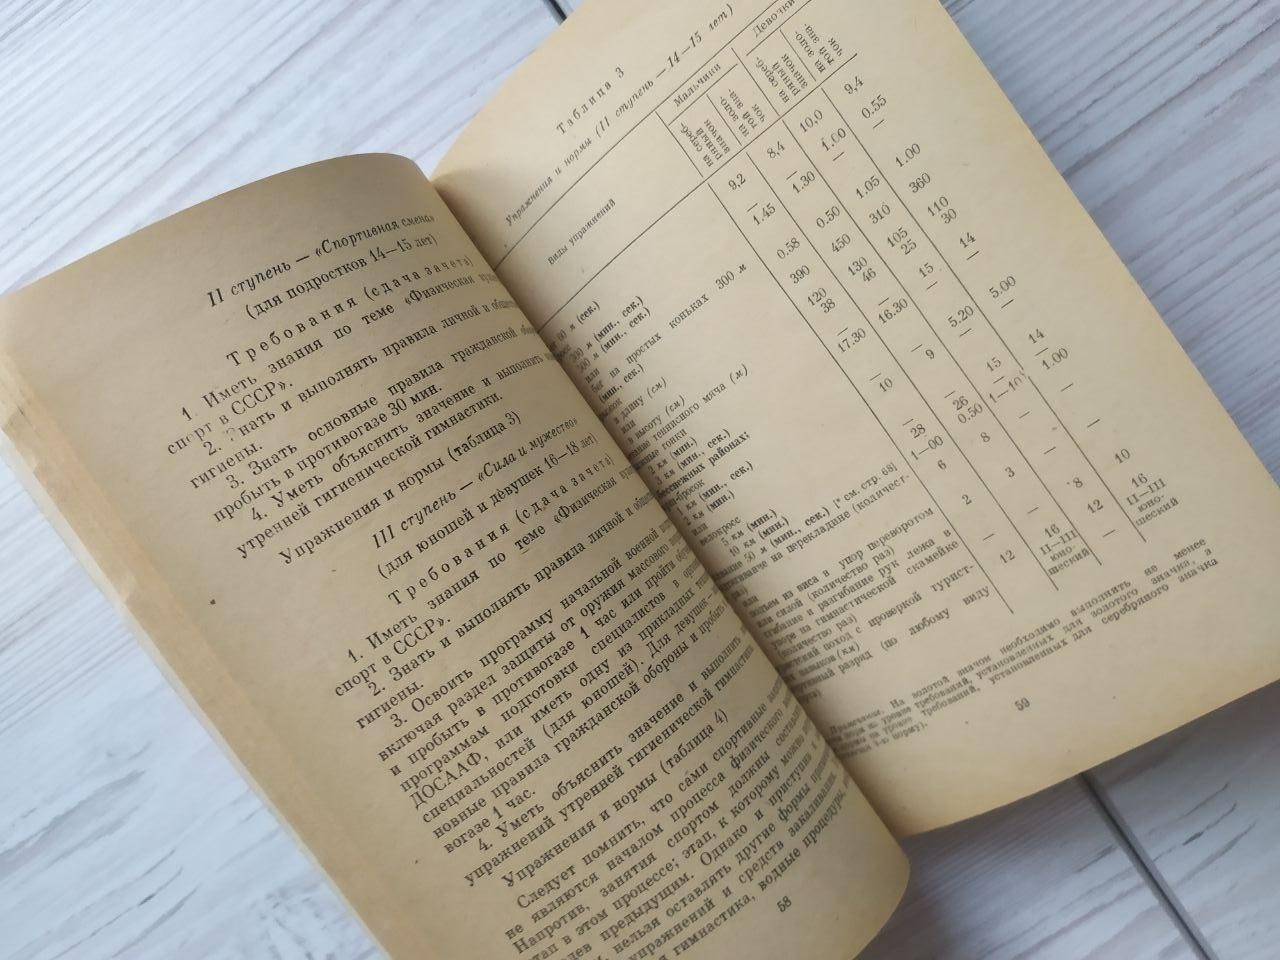 II ступень — «Спортивная смена»
(для подростков 14—15 лет)
Требования (сдача зачета)
1. Иметь знания по теме «Физическая
спорт в СССР».
2. Знать и выполнять правила личной и
гигиены.
3. Знать основные правила гражданской
пробыть в противогазе 30 мин.
4. Уметь объяснить значение и выполнить
утренней гигиенической гимнастики.
Упражнения и нормы (таблица 3)
III ступень — «Сила и мужество»
(для юношей и девушек 16—18 лет)
Требования (сдача зачета)
1. Иметь знания по теме «Физическая
спорт в СССР».
2. Знать и выполнять правила личной и
гигиены.
3. Освоить программу начальной военной
включая раздел защиты от оружия массового
и пробыть в противогазе 1 час или пройти
программам подготовки специалистов в
ДОСААФ, или иметь одну из прикладных
специальностей (для юношей). Для девушек —
новные правила гражданской обороны и пробыть
вогазе 1 час.
4. Уметь объяснить значение и выполнить
упражнений утренней гигиенической гимнастики
Упражнения и нормы (таблица 4)
Следует помнить, что сами спортивные
не являются началом процесса физического
Напротив, занятия спортом должны
этап в этом процессе; этап, к которому можно
предыдущим. Однако и приступив к
нельзя оставлять другие формы
упражнений и средств закаливания.
гимнастика, водные процедуры,
58
Таблица 3
Упражнения и нормы (II ступень — 14—15 лет)
Виды упражнений
Мальчики
Девочки
на сереб-
ряный
значок
на золо-
той зна-
чок
на сереб-
ряный
значок
на золо-
той зна-
чок
м (сек.) 9,2 8,4 10,0 9,4
м (мин., сек.) — — 1.00 0.55
м (мин., сек.) 1.45 1.30 — —
или
на простых коньках 300 м
(мин., сек.) 0.58 0.50 1.05 1.00
в длину (см) 390 450 310 360
или
в высоту (см) 120 130 105 110
теннисного мяча (м) 38 46 25 30
гонки
2 км (мин.) — — 15 14
км (мин., сек.) 17.30 16.30 — —
районах:
км (мин., сек.) — — 5.20 5.00
2 км (мин.) 10 9 — —
или
велокросс
5 км (мин.) — — 15 14
10 км (мин.) 28 26 — —
50 м (мин., сек.) [* см. стр. 68] 1—00 0.50 1—10 1.00
на перекладине (количест-
6 8 — —
из виса в упор переворотом
или силой (количество раз) 2 3 — —
и разгибание рук лежа в
упоре на гимнастической скамейке
(количество раз) — — 8 10
поход с проверкой турист-
навыков (км) 12 16 12 16
разряд (по любому виду
— II—III
юно-
шеский
— II—III
юно-
шеский
Примечание. На золотой значок необходимо выполнить не менее
норм на уровне требований, установленных для золотого значка, а
на уровне требований, установленных для серебряного значка
59